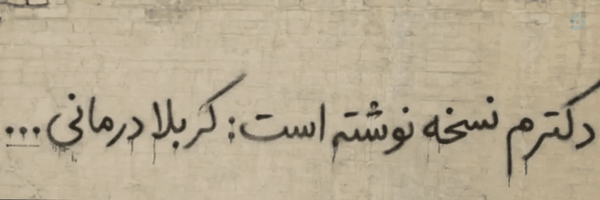 دکترم نسخه نوشته است: کربلا درمانی...